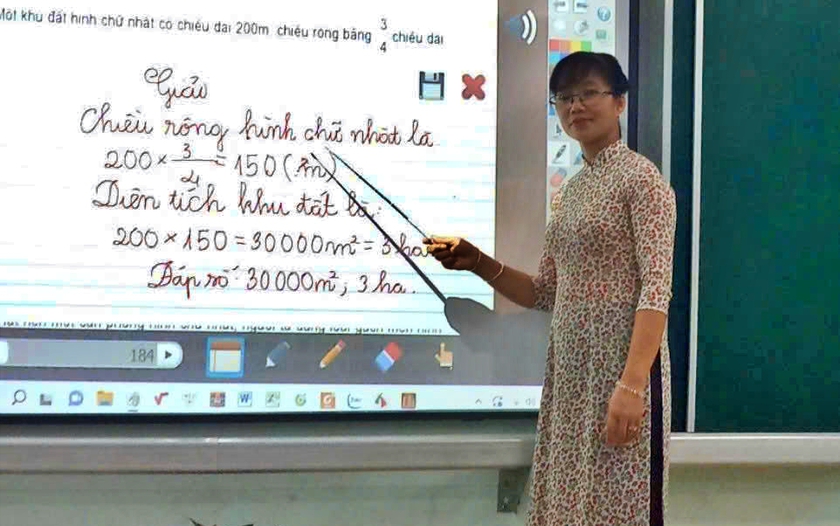 Một khu đất hình chữ nhật có chiều dài 200m chiều rộng bằng 3/4 chiều dài
Giải
Chiều rộng hình chữ nhật là
200 × 3/4 = 150 (m)
Diện tích khu đất là:
200 × 150 = 30000m² = 3 ha
Đáp số: 30000m², 3 ha.
184